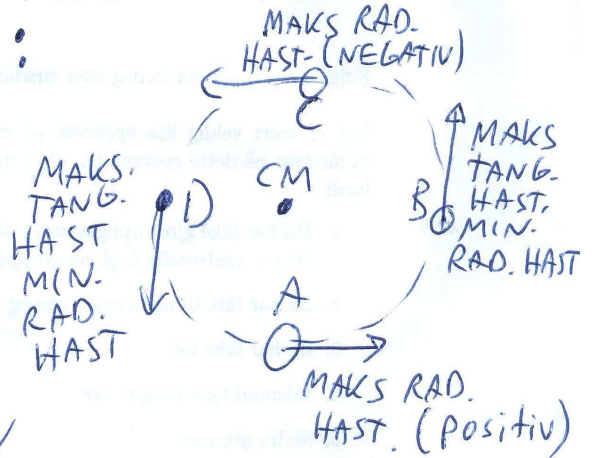 MAKS RAD.
HAST-(NEGATIV)
C
MAKS
TANG.
HAST,
MIN.
RAD. HAST
B
CM
MAKS.
TANG.
HAST
MIN.
RAD.
HAST
D
A
MAKS RAD.
HAST. (positiv)